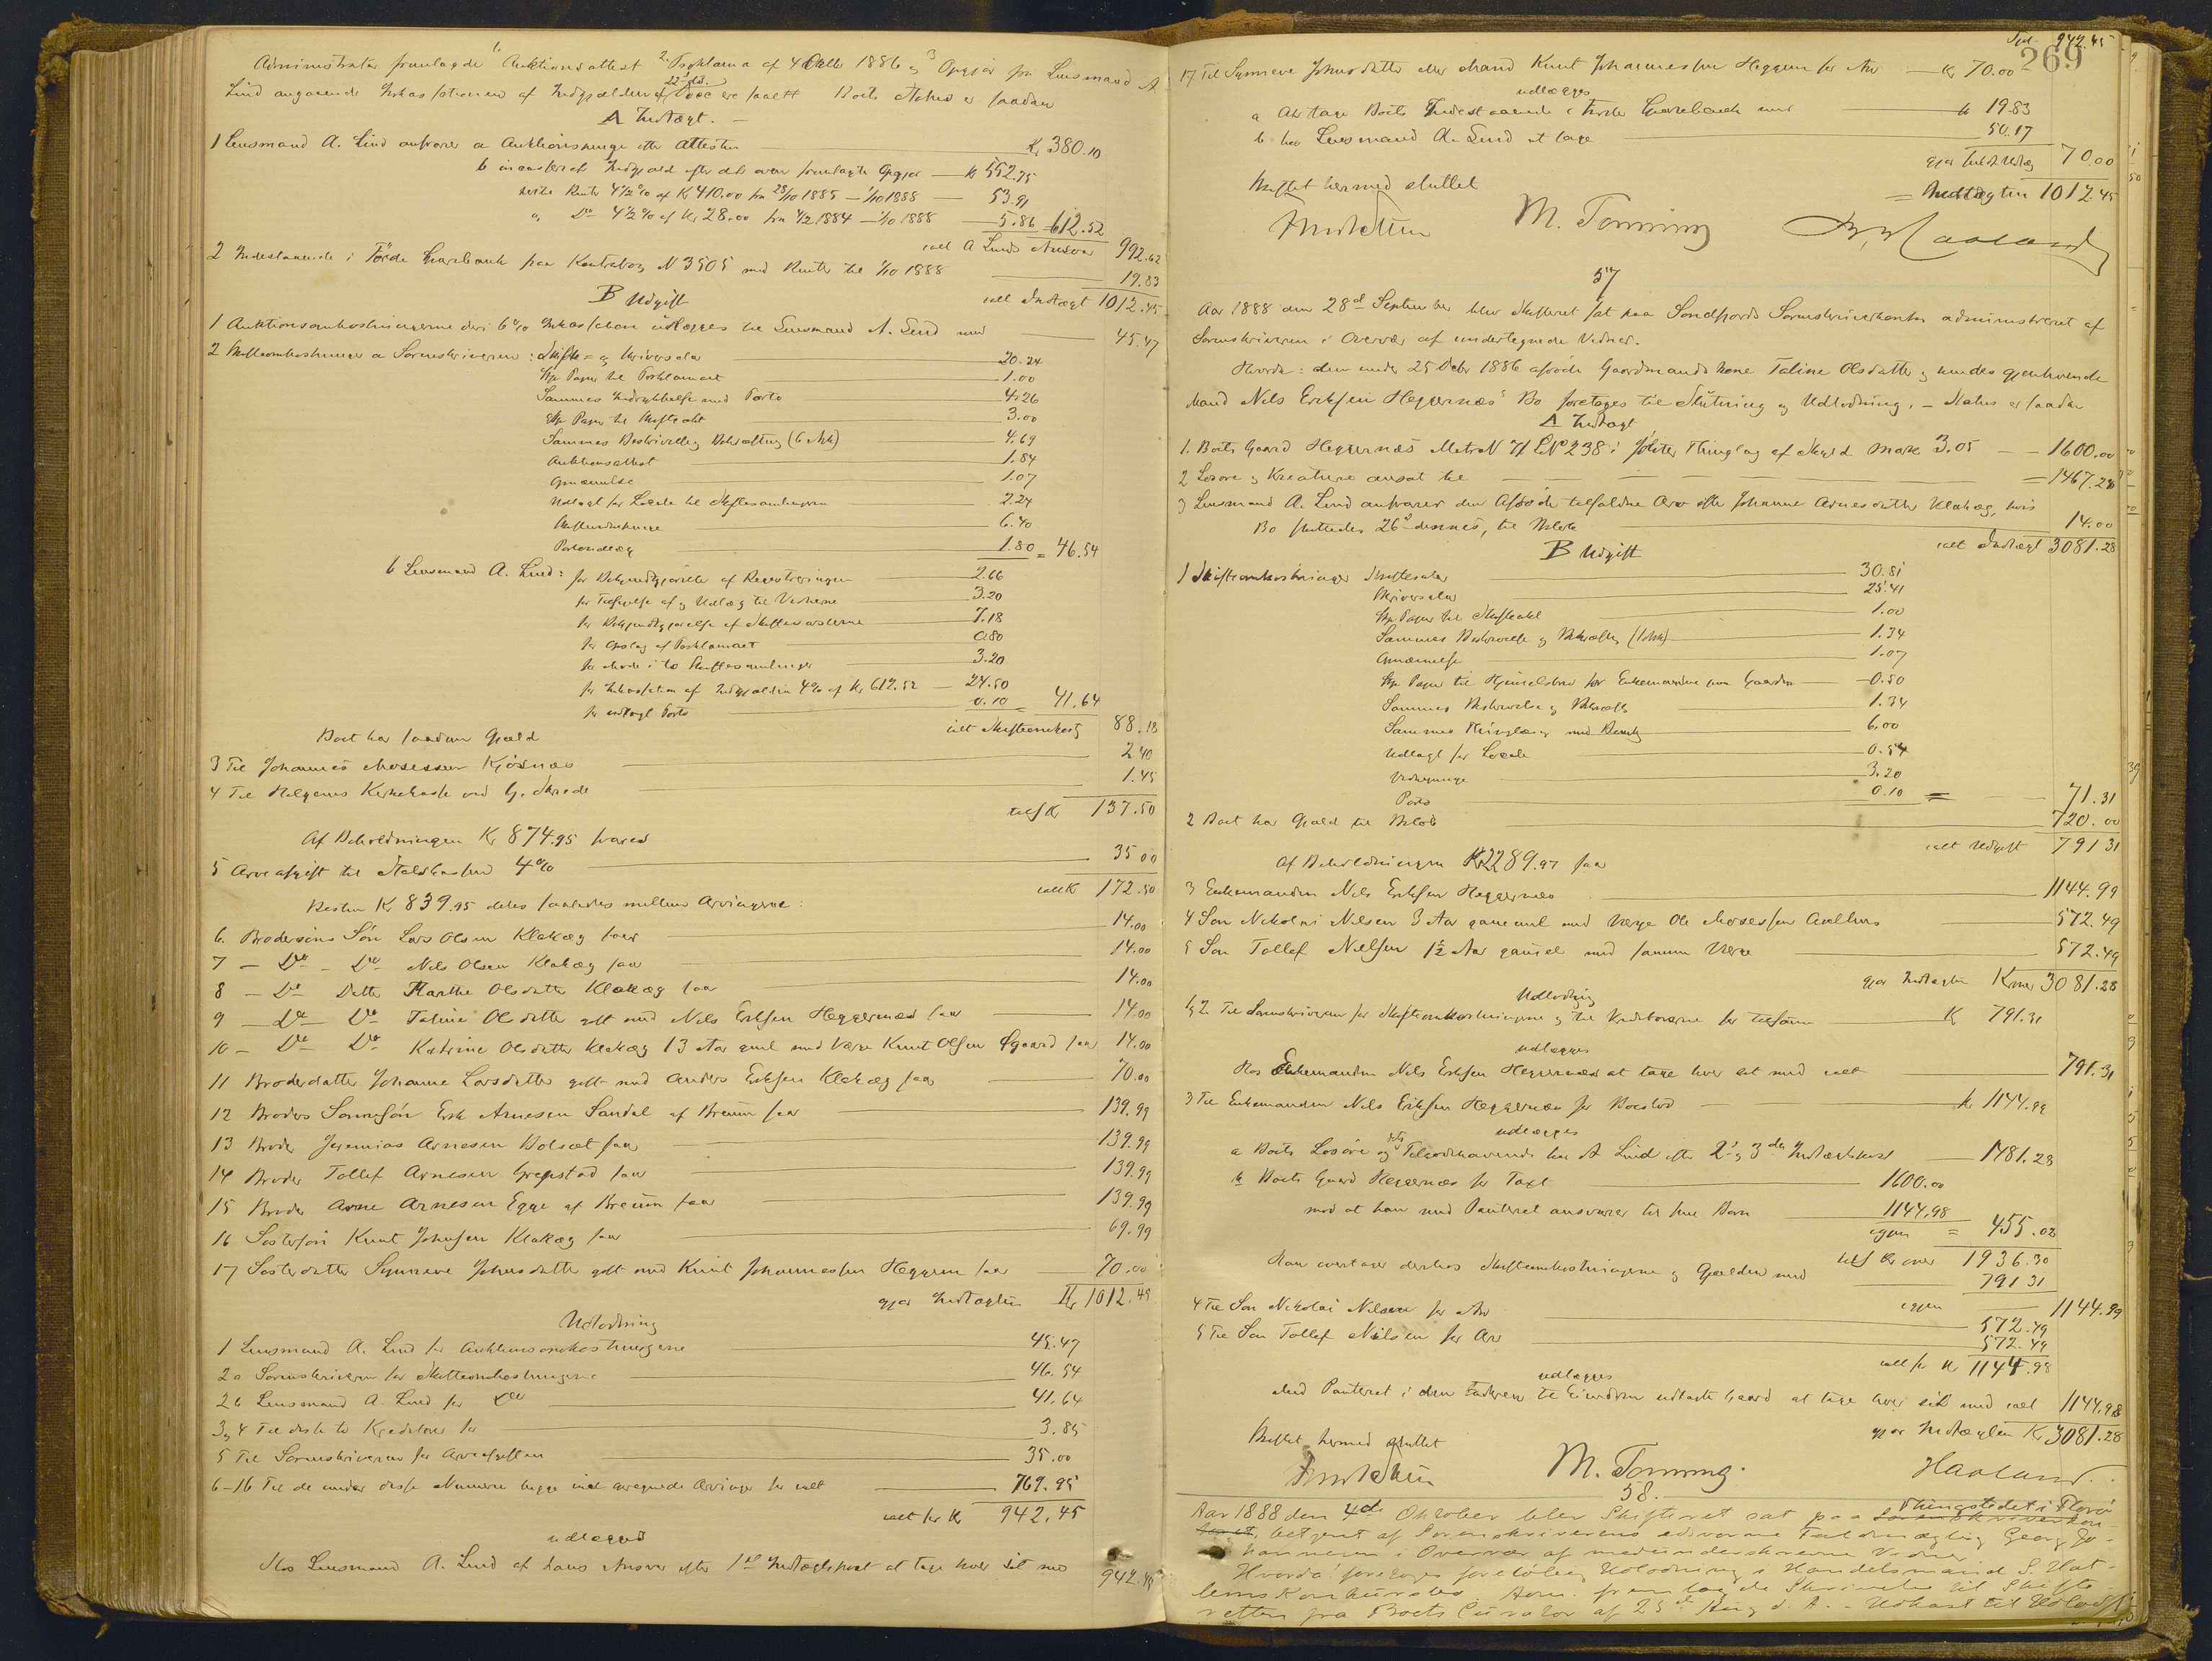 Administrator fremlagde 1. Auktionsattest 2. Proklama af 4 Oktbr 1886 og 3 Opgjør fra Lensmand A.
Lind angaaende Inkassationen af Indgjælden af 22 ds. Boets Status er saadan
A Indtægt. —
1 Lensmand A. Lind ansvarer a Auktionspenge efter Attesten Kr 380.10
b incasseret Indgjæld efter det oven fremlagte Opgjør — Kr 552.75
heraf Renter 4½% af Kr 410.00 fra 28/10 1885 — 1/10 1888 — 53.91
og Do 4½% af Kr 28.00 fra 4/2 1884 — 1/10 1888 — 5.86 612.52
ialt A Linds Ansvar 992.62
2 Indestaaende i Förde Sparebank paa Kontrabog N 3505 med Renter til 1/10 1888 19.83
ialt Indtægt 1012.45
B Udgift
1 Auktionsomkostningerne deri 6% Inkassation udlægges til Lensmand A. Lind med 45.47
2 Skifteomkostninger a Sorenskriveren: Skifte- og Skriversalær 20.24
Stp Papir til Proklamaet 1.00
Sammes Indrykkelse med Porto 4.26
Stp Papir til Skifteakt 3.00
Sammes Beskrivelse og Bekræftning (6 Ark) 4.69
Auktionsattest 1.84
Opnævnelse 1.07
Udlagt for Locale til Skiftesamlingerne 2.24
Skiftevidnepenge 6.40
Portoudlæg 1.80 = 46.54
b Lensmand A. Lind: for Bekjendtgjørelse af Registreringen 2.66
for Tilsigelse af og Udlæg til Vidnerne 3.20
for Bekjendtgjørelse af Skiftevarslerne 7.18
for Opslag af Proklamaet 0.80
for Møde i to Skiftesamlinger 3.20
for Inkassation af Indgjælden 4% af Kr 612.52 — 24.50
for udlagt Porto 0.10 = 41.64
ialt Skifteomkostg 88.18
Boet har saadan Gjæld
3 Til Johannes Mosessen Kjösnæs 2.40
4 Til Helgems Kirkekasse ved G. Skrede 1.45
tils Kr 137.50
Af Beholdningen Kr 874.95 svares
5 Arveafgift til Statskassen 4% 35.00
ialt Kr 172.50
Resten Kr 839.95 deles saaledes mellem Arvingerne:
6. Brodersöns Sön Lars Olsen Klakæg faar 14.00
7 — Do — Do Nils Olsen Klakæg faar 14.00
8 — Do Datter Marthe Olsdatter Klakæg faar 14.00
9 — Do — Do Taline Olsdatter gift med Nils Eriksen Heggernæs faar 14.00
10 — Do Do Katrine Olsdatter Klakæg 13 Aar gml med Værge Knut Olsen Øgaard faar 14.00
11 Broderdatter Johanne Larsdatter gift med Anders Eriksen Klakæg faar 70.00
12 Broders Sönnesön Erik Arnesen Sandal af Breum faar 139.99
13 Broder Jeremias Arnesen Bolsæt faar 139.99
14 Broder Tollef Arnesen Grepstad faar 139.99
15 Broder Arne Arnesen Egge af Breum faar 139.99
16 Søstersön Knut Johnsen Klakæg faar 69.99
17 Søsterdatter Synneve Johnsdatter gift med Knut Johannessen Heggem faar 70.00
gjør Indtægten Kr 1012.45
Udlodning
1 Lensmand A. Lind for Auktionsomkostningerne 45.47
2a Sorenskriveren for Skifteomkostningerne 46.54
2b Lensmand A. Lind for Do 41.64
3 og 4 Til disse to Kreditorer for 3.85
5 Til Sorenskriveren for Arveafgiften 35.00
6-16 Til de under disse Numere begge incl anregnede Arvinger for ialt 769.95
ialt for Kr 942.45
udlægges
Hos Lensmand A. Lind af hans Ansvar efter 1ste Indtægtspost at tage hver sit med 942.45
Trpt 942.45
269
17 Til Synneve Johnsdatter eller Mand Knut Johannessen Heggem for Arv — Kr 70.00
udlægges
a At tage Boets Indestaaende i Förde Sparebank med Kr 19.83
b hos Lensmand A. Lind at tage 50.17
gjør tilsl Udlæg 70.00
= Indtægten 1012.45
Skiftet hermed sluttet
M. Tonning
Haaland
57
Aar 1888 den 28de September blev Skifteret sat paa Søndfjords Sorenskriverkontor administreret af
Sorenskriveren i Overvær af undertegnede Vidner.
Hvorda: den under 25 Debr 1886 afdøde Gaardmandskone Taline Olsdatter og hendes gjenlevende
Mand Nils Eriksen Heggernæs' Bo foretages til Slutning og Udlodning. — Status er saadan
A Indtægt
1. Boets Gaard Heggernæs MatrN 71 LNo 238 i Jølster Thinglag af Skyld Mark 3.05 — — 1600.00
2 Løsøre og Kreature ansat til — — — = 1467.28
3 Lensmand A. Lind ansvarer den Afdøde tilfaldne Arv efter Johanne Arnesdatter Klakæg, hvis
Bo sluttedes 26de dennes, til Beløb 14.00
ialt Indtægt 3081.28
B Udgift
1 Skifteomkostninger Skiftesalær 30.81
Skriversalær 25.41
Stp Papir til Skifteakt 1.00
Sammes Beskrivelse og Bekræftg (1 Ark) 1.34
Opnævnelse 1.07
Stp Papir til Hjemmelsbrev for Enkemanden paa Gaarden — 0.50
Sammes Beskrivelse og Bekræftg 1.34
Sammes Thinglæsg med Bemkg 6.00
Udlagt for Locale 0.54
Vidnepenge 3.20
Porto 0.10 = 71.31
2 Boet har Gjæld til Beløb 720.00
ialt Udgift 791 31
Af Beholdningen Kr 2289.97 faar
3 Enkemanden Nils Eriksen Heggernæs 1144.99
4 Søn Nikolai Nilsen 3 Aar gammel med Værge Ole Mosessen Aardhus 572.49
5 Søn Tollef Nilsen 1½ Aar gammel med samme Værge 572.49
gjør Indtægten Kroner 3081.28
Udlodning
1 og 2 Til Sorenskriveren for Skifteomkostningerne og til Kreditorerne for tilsammen Kr 791.31
udlægges
Hos Enkemanden Nils Eriksen Heggernæs at tage hver sit med ialt 791.31
3 Til Enkemanden Nils Eriksen Heggernæs for Boeslod Kr 1144.99
udlægges
a Boets Løsøre og dets Tilgodehavende hos A Lind efter 2 og 3die Indtægtspost 1481.28
b Boets Gaard Heggernæs for Taxt 1600.00
mod at han med Panteret ansvarer til sine Børn 1144.98
igjen = 455.02
tils Kroner 1936.30
Han overtager derhos Skifteomkostningerne og Gjælden med 791 31
igjen 1144.99
4 Til Søn Nikolai Nilsen for Arv 572.49
5 Til Søn Tollef Nilsen for Arv 572.49
ialt for Kr 1144.98
udlægges
Med Panteret i den Faderen til Eiendom udlagte Gaard at tage hver sit med ialt 1144.98
gjør Indtægten Kr 3081.28
Skiftet hermed sluttet
M. Tonning.
Haaland.
58.
Aar 1888 den 4de Oktober blev Skifteret sat paa Thingstedet i Florø
betjent af Sorenskriverens edsvorne Fuldmægtig Georg Jo-
hannesen i Overvær af medunderskrevne Vidner
Hvorda: foretoges foreløbig Udlodning i Handelsmand S. Hat-
lems Konkursbo. Adm. fremlagde Skrivelse til Skifte-
retten fra Boets Curator af 25de Aug d. A. — Udkast til Udlodg